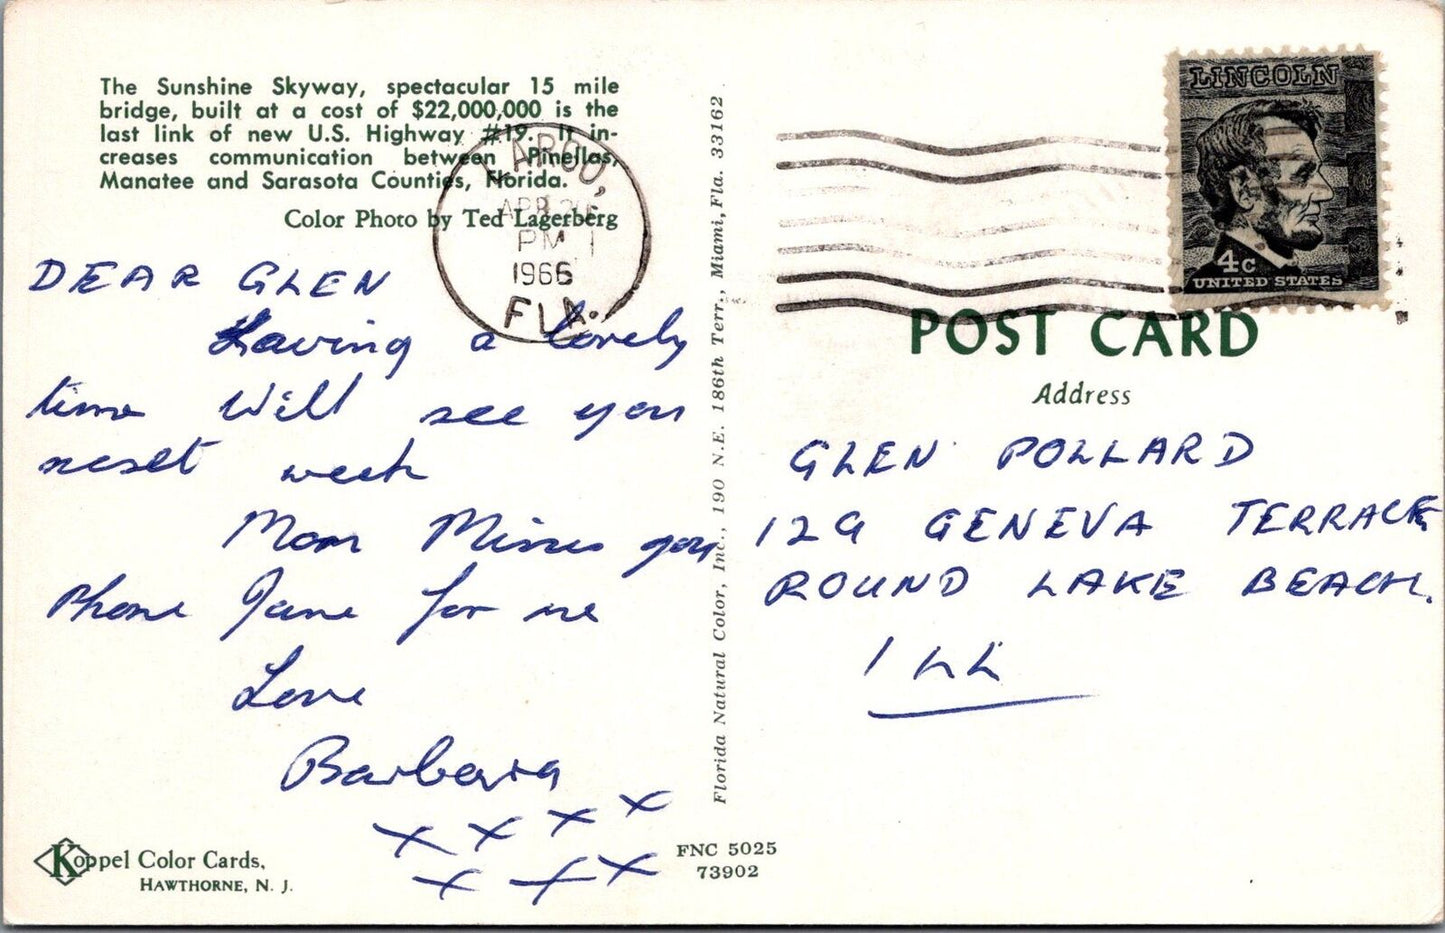 The Sunshine Skyway, spectacular 15 mile
bridge, built at a cost of $22,000,000 is the
last link of new U.S. Highway #19. It in-
creases communication between Pinellas,
Manatee and Sarasota Counties, Florida.
Color Photo by Ted Lagerberg
LARGO,
APR
PM
1966
FLA.
DEAR GLEN
Having a lovely
time Will see you
next week
Mom Misses you
Phone Jane for me
Love
Barbara
x x x x
x x x
Koppel Color Cards,
HAWTHORNE, N. J.
Florida Natural Color, Inc., 190 N.E. 186th Terr., Miami, Fla. 33162
FNC 5025
73902
LINCOLN
4c
UNITED STATES
POST CARD
Address
GLEN POLLARD
129 GENEVA TERRACE
ROUND LAKE BEACH.
ILL